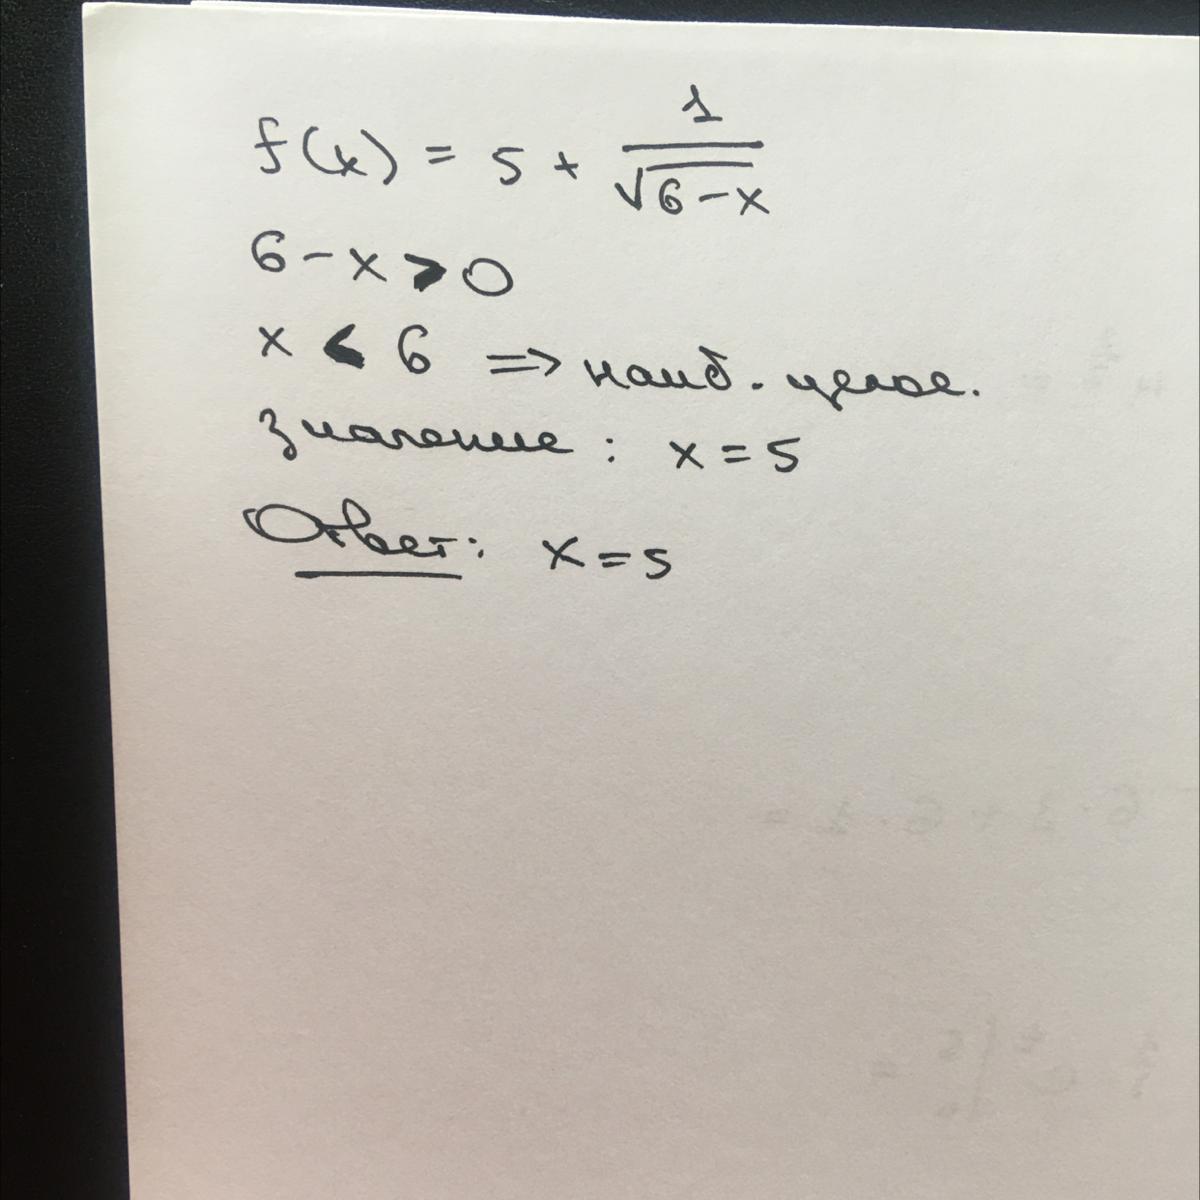 f(x) = 5 + 1/√(6-x)
6 - x > 0
x < 6 => наиб. целое.
Значение : x = 5
Ответ: x = 5